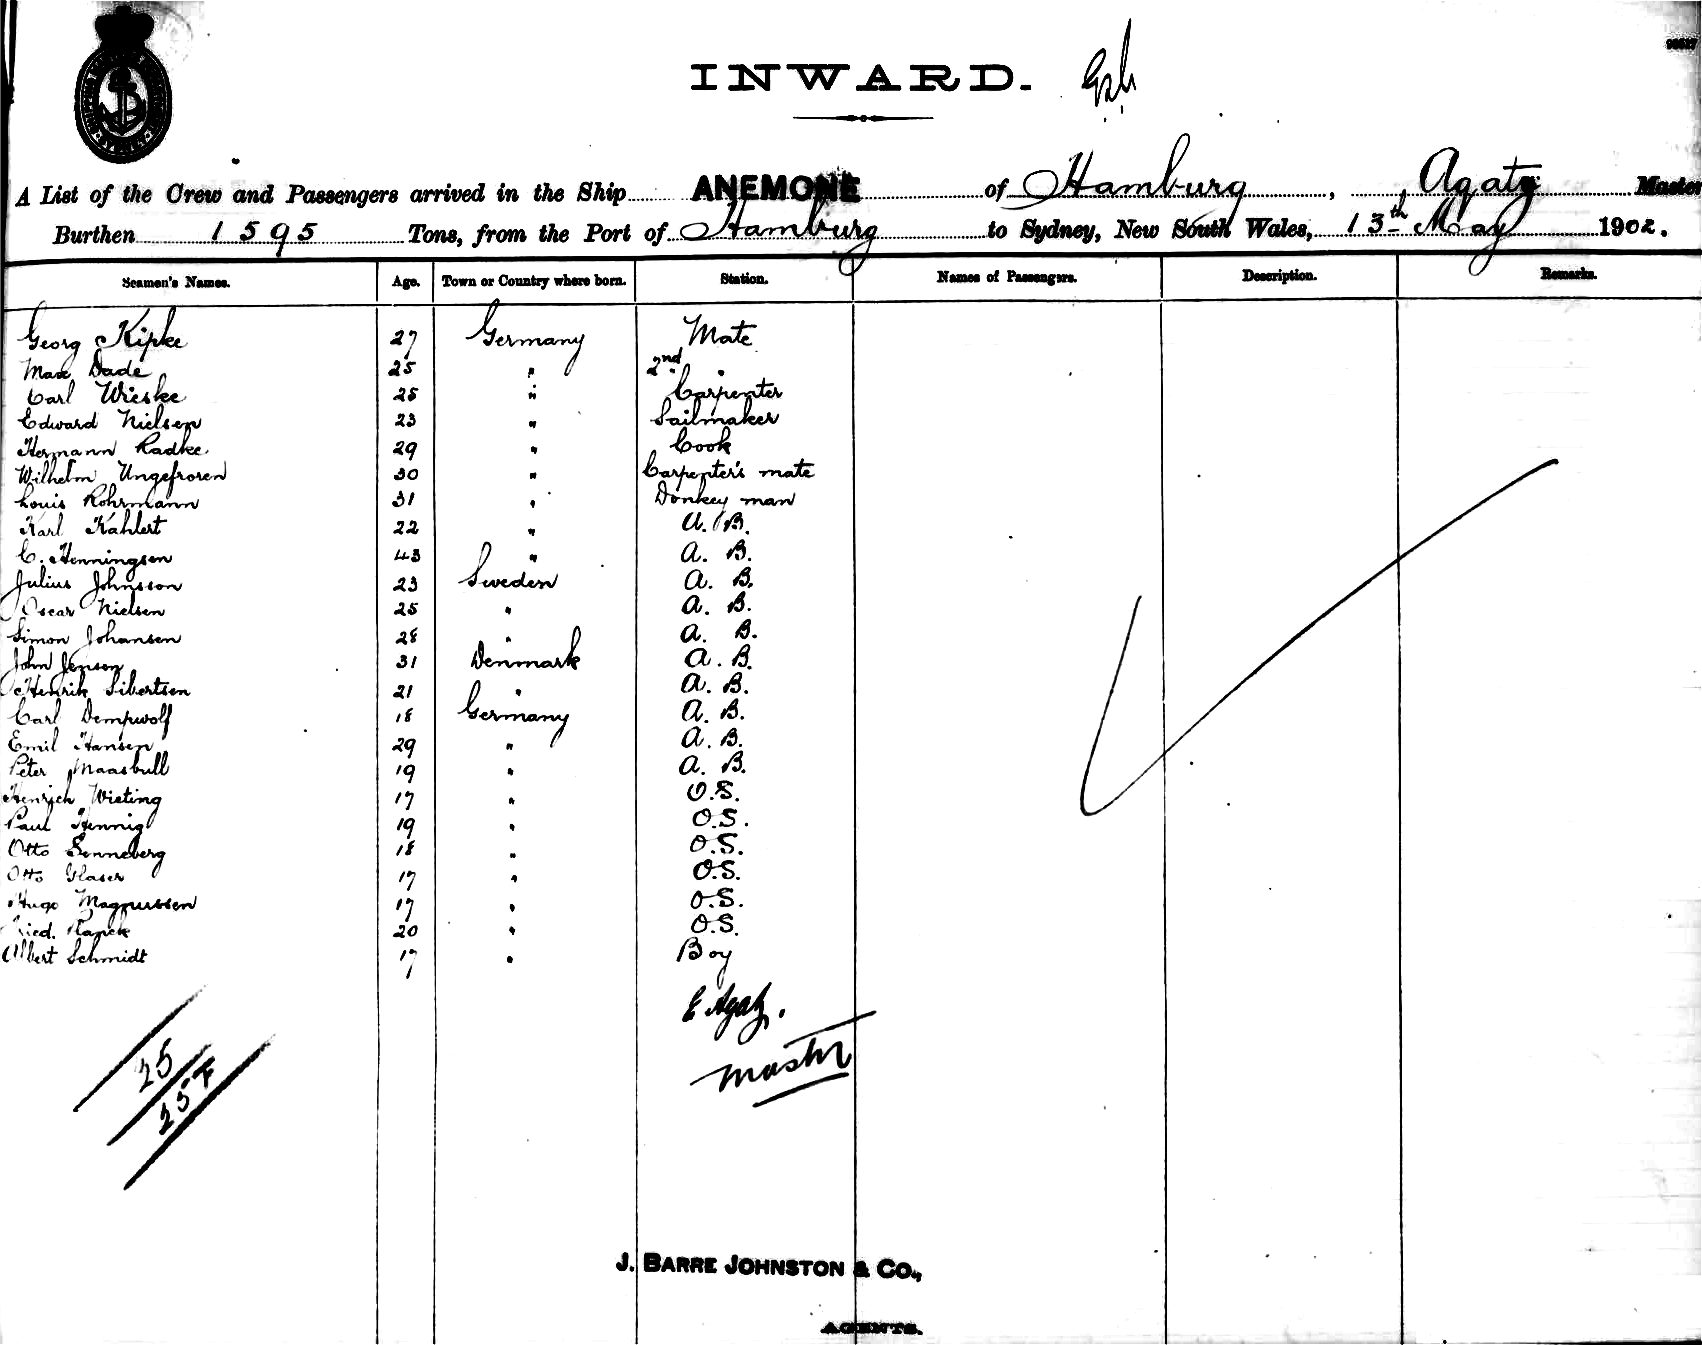 INWARD.
A List of the Crew and Passengers arrived in the Ship ANEMONE of Hamburg, Agatz Master
Burthen 1595 Tons, from the Port of Hamburg to Sydney, New South Wales, 13th May 1902.
Seamen's Names. Age. Town or Country where born. Station. Names of Passengers. Description. Remarks.
Georg Kipke 27 Germany Mate
Max Dade 25 " 2nd "
Carl Wieske 25 " Carpenter
Edward Nielsen 23 " Sailmaker
Hermann Radke 29 " Cook
Wilhelm Ungefroren 30 " Carpenter's mate
Louis Rohrmann 31 " Donkey man
Karl Kahlert 22 " A. B.
C. Henningsen 43 " A. B.
Julius Johnsson 23 Sweden A. B.
Oscar Nielsen 25 " A. B.
Simon Johansen 28 " A. B.
John Jensen 31 Denmark A. B.
Henrik Sibertsen 21 " A. B.
Carl Dempwolf 18 Germany A. B.
Emil Hansen 29 " A. B.
Peter Maasbull 19 " A. B.
Henrich Wieting 17 " O.S.
Paul Hennig 19 " O.S.
Otto Senneberg 18 " O.S.
Otto Glaser 17 " O.S.
Hugo Magnussen 17 " O.S.
Fried. Rapck 20 " O.S.
Albert Schmidt 17 " Boy
E Agatz.
Master
25
25 F
J. BARRE JOHNSTON & CO.,
AGENTS.